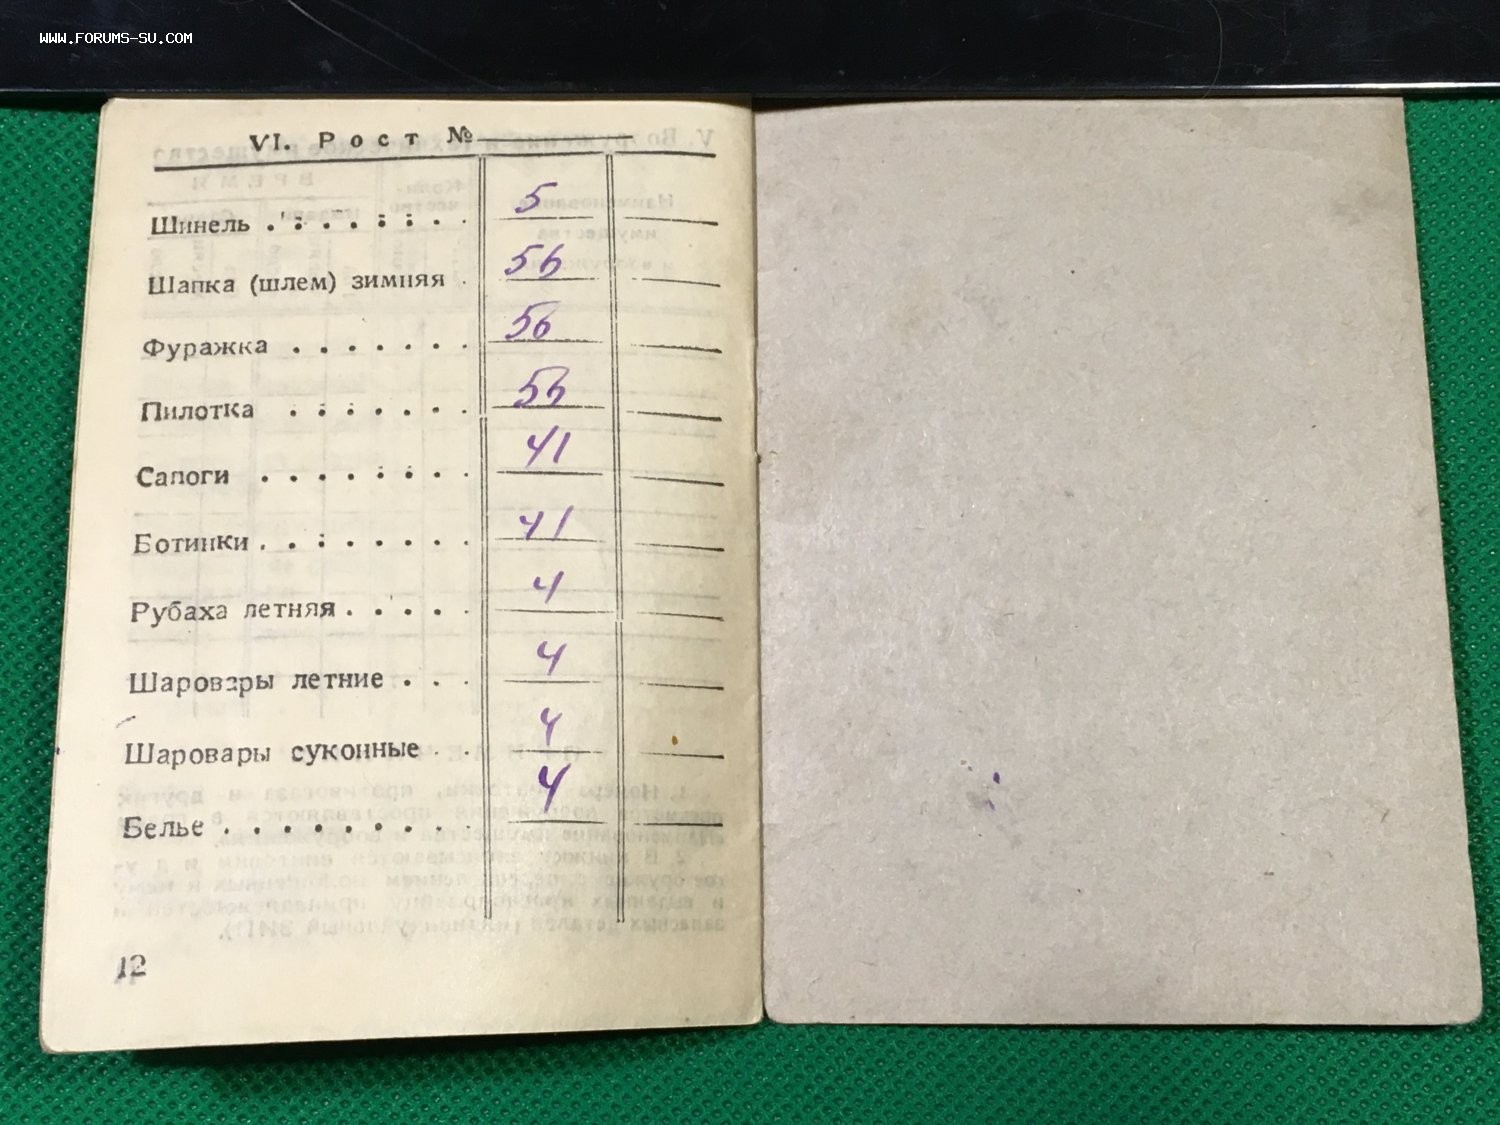 WWW.FORUMS-SU.COM
VI. Рост №
Шинель 5
Шапка (шлем) зимняя 56
Фуражка 56
Пилотка 56
Сапоги 41
Ботинки 41
Рубаха летняя 4
Шаровары летние 4
Шаровары суконные 4
Белье 4
12